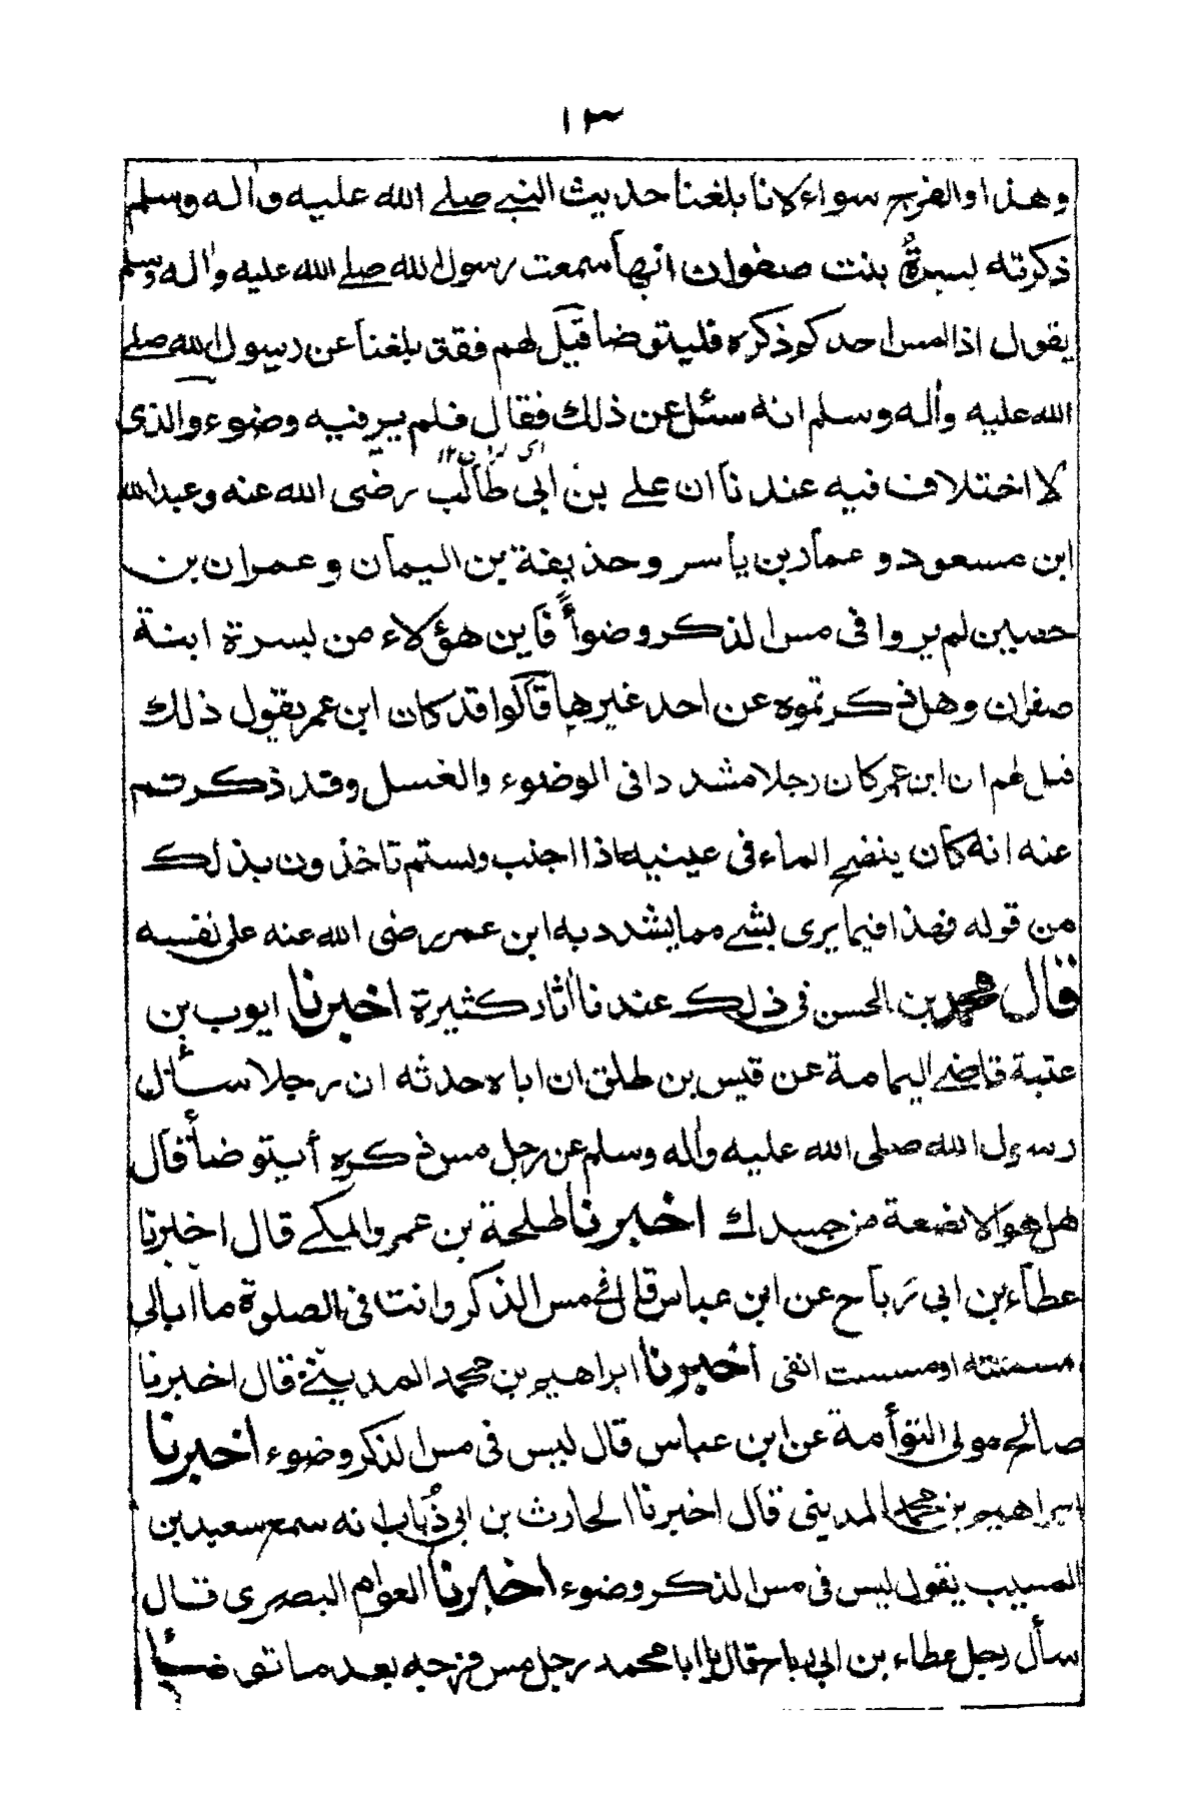 ١٣
وهذا والفرج سواء لانا بلغنا حديث النبي صلے الله عليه واٰله وسلم
ذكرته لبسرةُ بنت صفوان انها سمعت رسول الله صلے الله عليه واٰله وسلم
يقول اذا لمس احدكم ذكره فليتوضأ قيل لهم فقد بلغنا عن رسول الله صلے
الله عليه واٰله وسلم انه سئل عن ذلك فقال فلم ير فيه وضوء والذى
لا اختلاف فيه عندنا ان علے بن ابى طالب رضى الله عنه وعبدالله
ابن مسعود و عمار بن ياسر وحذيفة بن اليمان و عمران بن
حصين لم يروا فى مس الذكر وضوأً فاين هؤلاء من بسرة ابنة
صفوان وهل ذكرتموه عن احد غيرها قالوا قد كان ابن عمر يقول ذلك
قيل لهم ان ابن عمر كان رجلا مشددا فى الوضوء والغسل وقد ذكرتم
عنه انه كان ينضح الماء فى عينيه اذا اجنب ولستم تاخذون بذلك
من قوله فهذا فيما يرى بشے مما يشدد به ابن عمر رضى الله عنه على نفسه
قال محمد بن الحسن فى ذلك عندنا اٰثار كثيرة اخبرنا ايوب بن
عتبة قاضے اليمامة عن قيس بن طلق ان اباه حدثه ان رجلا سأل
رسول الله صلى الله عليه واٰله وسلم عن رجل مس ذكره أيتوضأ قال
هل هو الا بضعة من جسدك اخبرنا طلحة بن عمرو المكے قال اخبرنا
عطاء بن ابى رَباح عن ابن عباس قال فے مس الذكر وانت فى الصلوة ما ابالى
مسسته او مسست انفى اخبرنا ابراهيم بن محمد المدينے قال اخبرنا
صالح مولى التوأمة عن ابن عباس قال ليس فى مس الذكر وضوء اخبرنا
ابراهيم بن محمد المدينى قال اخبرنا الحارث بن ابى ذُباب انه سمع سعيد بن
المسيب يقول ليس فى مس الذكر وضوء اخبرنا العوام البصرى قال
سأل رجل عطاء بن ابى رباح قال يا ابا محمد رجل مس فرجه بعد ما توضأ